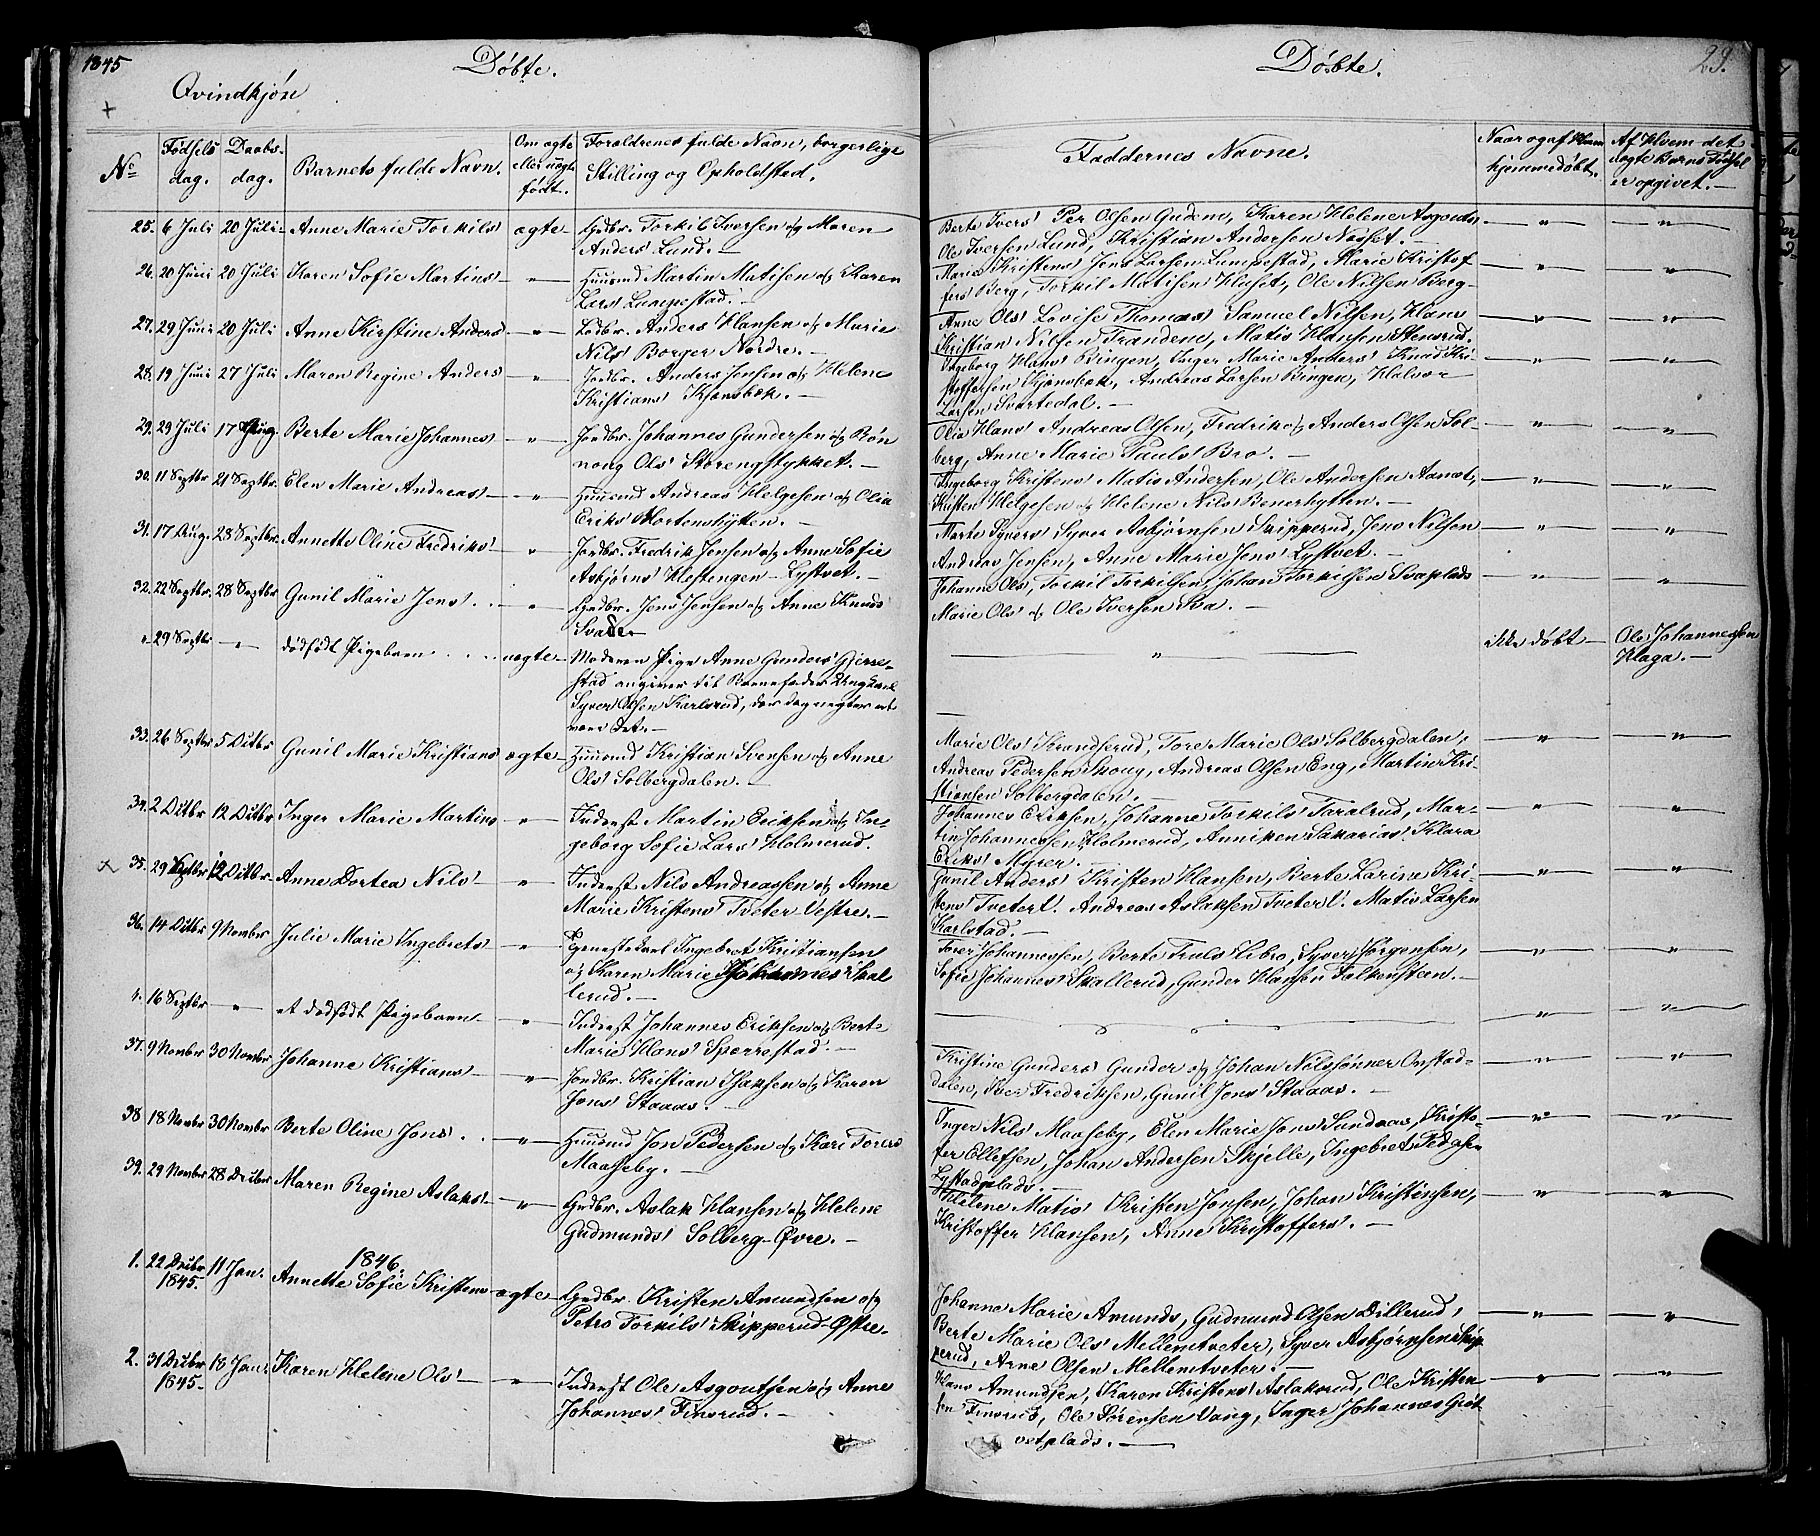 1845
Döbte.
Qvindkjön
No
Födsels
dag.
Daabs-
dag.
Barnets fulde Navn.
Om ægte
eller uægte
födt.
Forældrenes fulde Navn, borgerlige
Stilling og Opholdsted.
25. 6 Juli 20 Juli Anne Marie Torkils' ægte Grdbr. Torkil Iversen og Maren
Anders' Lund. —
26. 20 Juni 20 Juli Karen Sofie Martins' — " — Huusmd Martin Matisen og Karen
Lars' Lumpestad. —
27. 29 Juni 20 Juli Anne Kirstine Anders' — " — Anders Hansen og Marie
Nils' Borger Nordre. —
28. 19 Juni 27 Juli Maren Regine Anders' " Jordbr. Anders Jensen og Helene
Kristians' Kjønsbæk. —
29. 29 Juli 17 Aug. Berte Marie Johannes' — " — Jordbr. Johannes Gundersen og Rön
noug Ols' Storengstykket. —
30. 11 Septbr. 21 Septbr. Elen Marie Andreas' — " — Huusmd Andreas Helgesen og Olia
Eriks' Mortenshytten. —
31. 17 Aug. 28 Septbr. Annette Oline Fredriks' " Jordbr. Fredrik Jensen og Anne Sofie
Asbjørns' Lystvet. —
32. 22 Septbr. 28 Septbr Gunil Marie Jens' . . — " — Grdbr. Jens Jensen og Anne Knuds'
". 29 Septbr — " — dödfödt Pigebarn . . . . uægte — Moderen Pige Anne Gunders' Gjerre-
stad angiver til Barnefader Ungkarl
Syver Olsen Karlsrud, der dog negter at
være det. —
33. 26 Septbr 5 Octbr Gunil Marie Kristians' ægte — Huusmd Kristian Svensen og Anne
Ols' Solbergdalen. —
34. 2 Octbr 12 Octbr Inger Marie Martins' — " — Inderst Martin Eriksen og In-
geborg Sofie Lars' Holmerud.
35. 29 Septbr 12 Octbr Anne Dortea Nils' — " — Inderst Nils Andreassen og Anne
Marie Kristens' Tveter Vestre. —
36. 14 Octbr 9 Novbr Julie Marie Ingebrets' — " — Tjenestekarl Ingebret Kristiansen
og Karen Marie Johannes' Skal
lerud. —
". 16 Septbr — " — et dødfødt Pigebarn — " — Inderst Johannes Eriksen og Berte
Marie Hans' Sperrestad. —
37. 9 Novbr 30 Novbr Johanne Kristians' — " — Jordbr. Kristian Isaksen og Karen
Jens' Staaas. —
38 18 Novbr 30 Novbr Berte Oline Jons' . . — " — Huusmd Jon Pedersen og Kari Tores'
Maaseby. —
39. 29 Novbr 28 Decbr Maren Regine Aslaks' — " — Grdbr. Aslak Hansen og Helene
Gudmunds' Solberg-Øvre. —
1846.
1. 22 Decbr
1845. 11 Jan. Annette Sofie Kristens' ægte — Grdbr Kristen Amundsen og
Petro Torkils' Skipperud-Østre.
2. 31 Decbr
1845. 18 Janr Karen Helene Ols' — " — Inderst Ole Asgoutsen og Anne
Johannes' Finsrud. —
Döbte.
29.
Faddernes Navne.
Naar og af Hvem
hjemmedøbt.
Af Hvem det
døgte Barns Födsel
er opgivet. —
Berte Ivers' Per Olsen Gudene, Karen Helene Asgouts'
Ole Iversen Lund, Kristian Andersen Næset. —
Marie Kristens' Jens Larsen Lumpestad, Marie Kristof
fers' Berg, Torkil Matisen Huset, Ole Nilsen Berg —
Anne Ols' Lovise Thomas' Samuel Nilsen, Hans
Kristian Nilsen Trandene, Matis Hansen Stensrud.
Ingeborg Hans' Bingen, Inger Marie Anders' Knud Kri
stoffersen Kjønsbæk, Andreas Larsen Bingen, Halvor
Larsen Svartedal. —
Olia Hans' Andreas Olsen, Fredrik og Anders Olsen Sol-
berg, Anne Marie Pauls' Bro. —
Ingeborg Kristens' Matis Andersen, Ole Andersen Aanæt,
Kristen Helgesen og Helene Nils' Benerhytten. —
Marte Syvers' Syver Asbjørnsen Skipperud, Jens Nilsen
Andreas Jensen, Anne Marie Jens' Lystvet. —
Johanne Ols', Torkil Torkilsen, Johan Torkilsen Svaplads
Marie Ols' og Ole Iversen Sva. —
ikke døbt —
Ole Johannessen
Haga. —
Marie Ols' Krandserud, Tore Marie Ols' Solbergdalen,
Andreas Pedersen Skoug, Andreas Olsen Eng, Martin Kri-
stiansen Solbergdalen. —
Johannes Eriksen, Johanne Torkils' Taralrud, Mar-
tin Johannessen Holmerud, Anniken Sakarias' Klara
Eriks' Myrer. —
Gunil Anders' Kristen Hansen, Berte Larine Kri-
stens' Tveter V. Andreas Aslaksen Tveter V. Matis Larsen
Karlstad. —
Torer Johannessen, Berte Truls' Slibro, Syver Jörgensen,
Sofie Johannes' Skallerud, Gunder Hansen Falkensteen. —
Kristine Gunders' Gunder og Johan Nilssønner Onstad-
dalen, Iver Fredriksen, Gunil Jens' Staaas. —
Inger Nils' Maaseby, Elen Marie Jens' Sundaas, Kristo-
fer Ellefsen, Johan Andersen Skjelle, Ingebret Peders
Lystadplads. —
Helene Matis' Kristen Jonsen, Johan Kristensen,
Kristoffer Hansen, Anne Kristoffers'. —
Johanne Marie Amunds', Gudmund Olsen Dillerud,
Berte Marie Ols' Mellemtveter, Syver Asbjørnsen Skip
perud, Arne Olsen Mellemtveter. —
Hans Amundsen, Karen Kristens' Aslaksrud, Ole Kristen
sen Finsrud, Ole Sørensen Vang, Inger Johannes' Gröt
vetplads. —